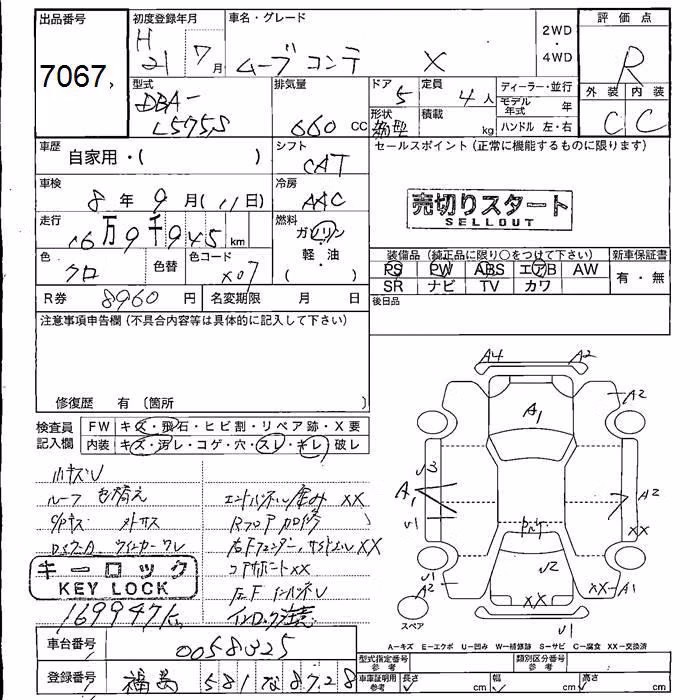 出品番号
7067
初度登録年月
H 21 7月
車名・グレード
ムーブコンテ X
2WD・4WD
評価点
R
外装 内装
C C
型式
DBA-
L575S
排気量
660 CC
ドア 5
形状
定員 4人
積載 kg
ディーラー・並行
モデル年式 年
ハンドル 左・右
車歴
自家用・( )
シフト
CAT
セールスポイント(正常に機能するものに限ります)
車検
8年9月(11日)
冷房
AAC
売切りスタート
SELLOUT
走行
16万9千945km
燃料
ガソリン
軽・油
( )
色
クロ
色替
色コード
X07
装備品(純正品に限り○をつけて下さい)
新車保証書
PS PW ABS エアB AW
有・無
SR ナビ TV カワ
R券 8960円
名変期限 月 日
後日品
注意事項申告欄(不具合内容等は具体的に記入して下さい)
修復歴 有(箇所 )
検査員記入欄
FW キズ・飛石・ヒビ割・リペア跡・X要
内装 キズ・汚レ・コゲ・穴・スレ・キレ・破レ
小キズU
ルーフ色替え
XX
Rフロア
右Fフェンダー
XX
コアサポートXX
ウインカーワレ
キーロック
KEY LOCK
169947km
インロック注意
A4 A2
A1
A2
U3
A1
U1
A2
XX
U1
A2
U2
XX
XX
A1
U1
スペア
A=キズ E=エクボ U=凹み W=補修跡 S=サビ C=腐食 XX=交換済
車台番号
0058325
型式指定番号参考
類別区分番号参考
登録番号
福島 581 な 8728
車庫証明用参考
長さ cm 幅 cm 高さ cm